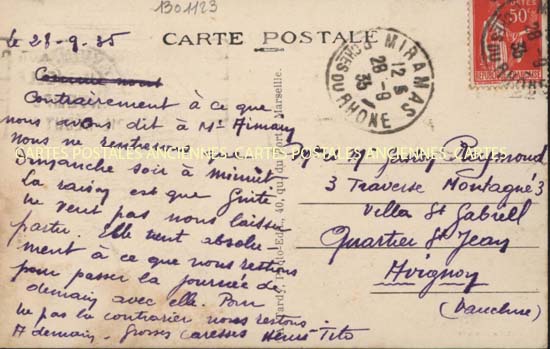 1301123
le 28-9.35
CARTE POSTALE
MIRAMAS
12
28-9
35
BCHES DU RHONE
50c
POSTES
Comme nous
Contrairement à ce que
nous avons dit à Mr
nous ne rentrerons
Dimanche soir à minuit
La raison est que Guite
ne veut pas nous laisser
partir. Elle veut absolu-
ment à ce que nous restions
pour passer la journée de
demain avec elle. Pour
ne pas la contrarier nous restons.
A demain. Grosses caresses Tito
CARTES POSTALES ANCIENNES CARTES POSTALES ANCIENNES CARTES POSTALES ANCIENNES
40, quai du Port, Marseille.
Raymond
3 Traverse Montagné 3
Villa St Gabriell
Quartier St Jean
Avignon
(Vaucluse)